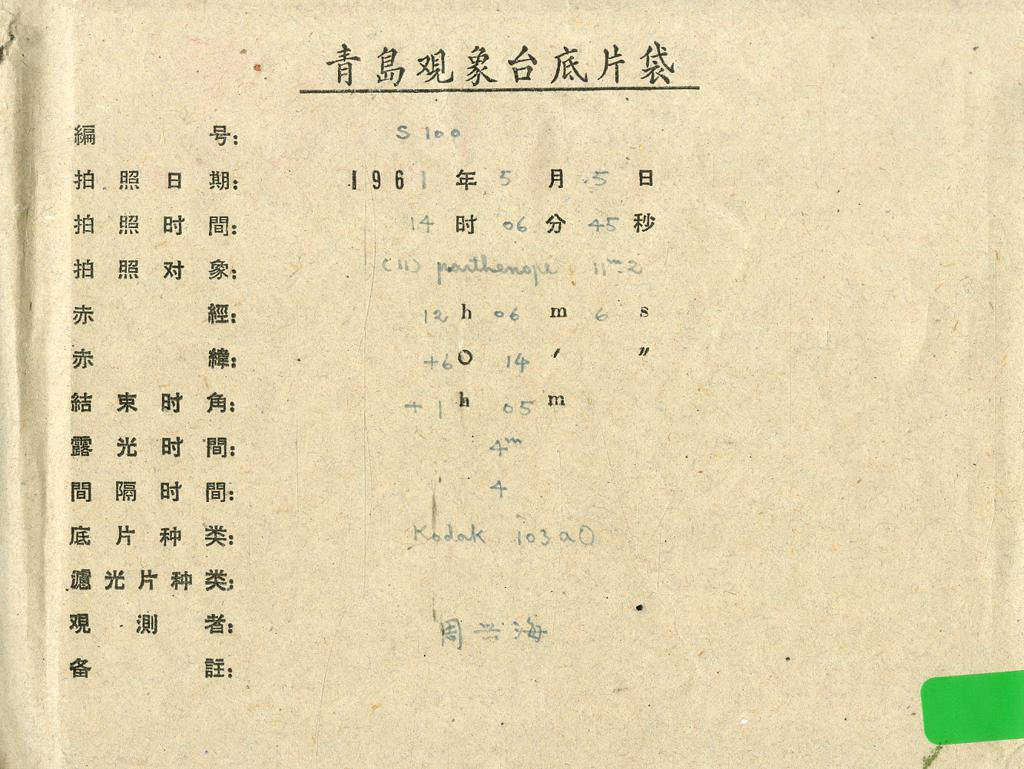 青島观象台底片袋
編号: S 100
拍照日期: 1961年5月5日
拍照时間: 14时06分45秒
拍照对象: (11) parthenope 11ᵐ.2
赤經: 12 h 06 m 6 s
赤緯: +6 O 14 ′ ″
結束时角: +1 h 05 m
露光时間: 4ᵐ
間隔时間: 4
底片种类: Kodak 103aO
濾光片种类:
观測者: 周兴海
备註: